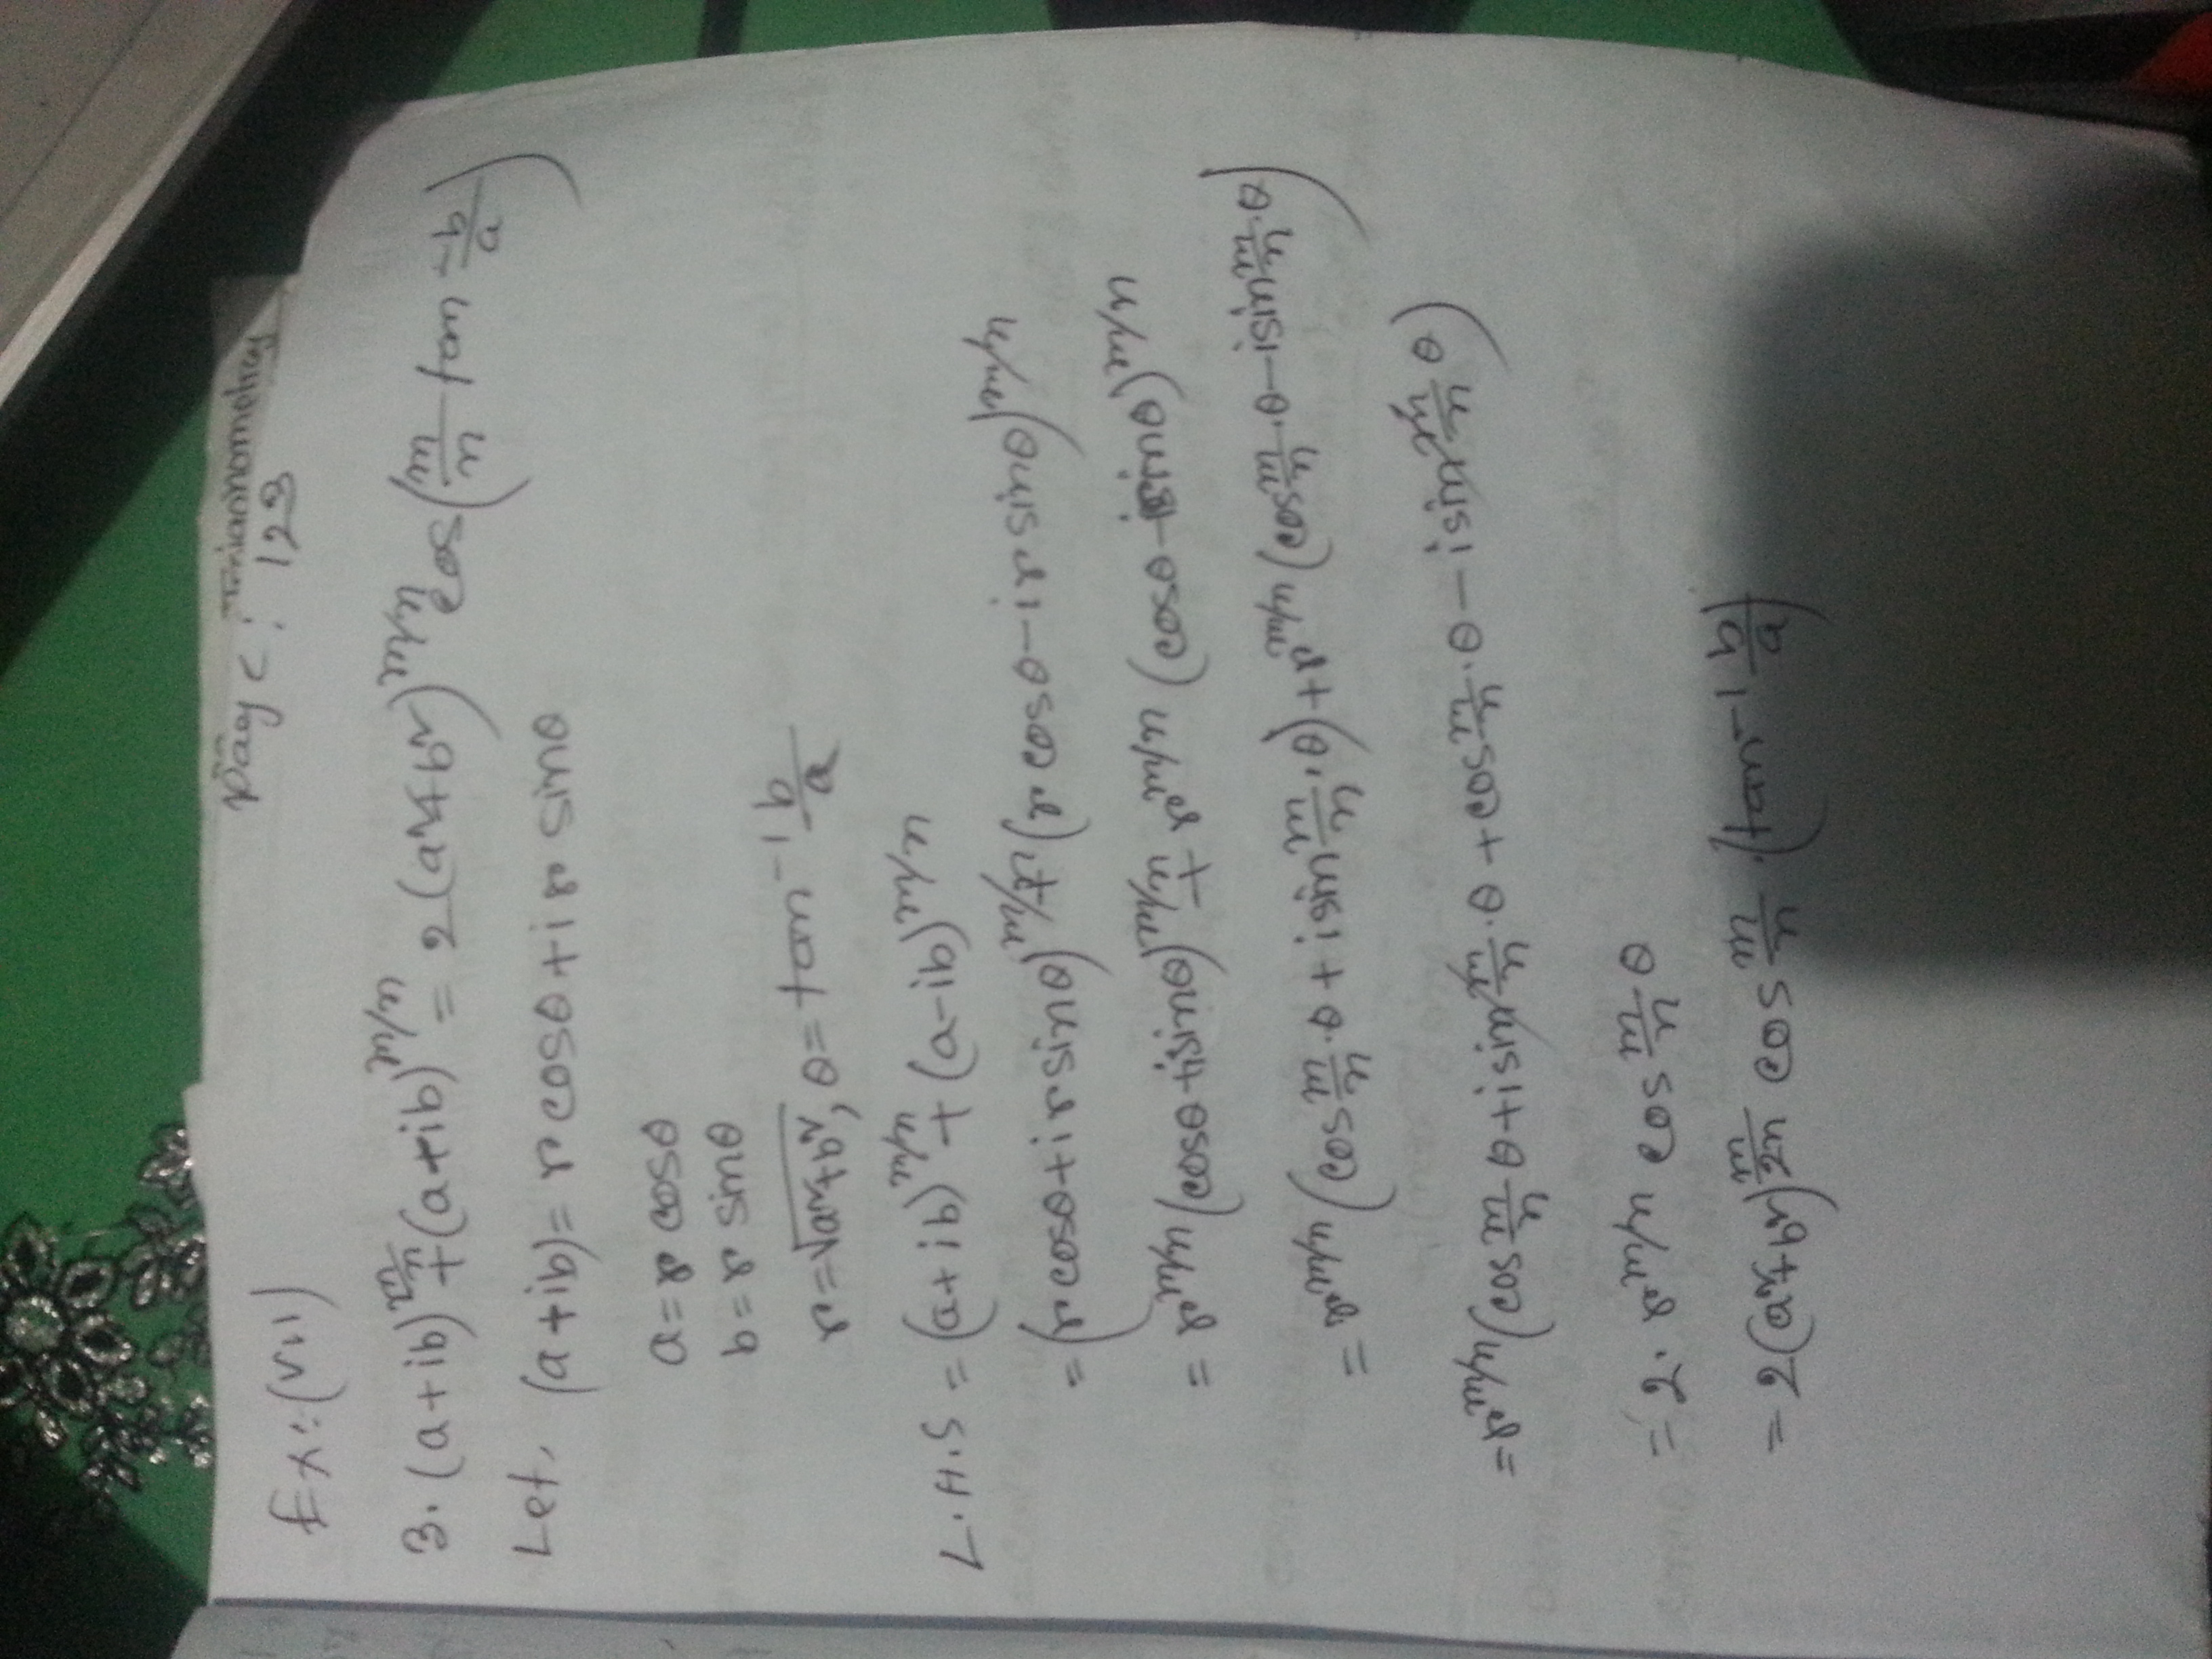 Trigonometry
Page: 123
Ex: (VII)
3. (a+ib)^{m/n} + (a-ib)^{m/n} = 2(a²+b²)^{m/n} cos(m/n tan - b/a)
Let, (a+ib) = r cosθ + i r sinθ
a = r cosθ
b = r sinθ
r = √(a²+b²), θ = tan⁻¹ b/a
L.H.S = (a+ib)^{m/n} + (a-ib)^{m/n}
= (r cosθ + i r sinθ)^{m/n} + (r cosθ - i r sinθ)^{m/n}
= r^{m/n} (cosθ + i sinθ)^{m/n} + r^{m/n} (cosθ - i sinθ)^{m/n}
= r^{m/n} (cos m/n . θ + i sin m/n . θ) + r^{m/n} (cos m/n . θ - i sin m/n . θ)
= r^{m/n} (cos m/n θ + i sin m/n . θ + cos m/n . θ - i sin m/n θ)
= 2. r^{m/n} cos m/n θ
= 2(a²+b²)^{m/2n} cos m/n . (tan⁻¹ b/a)